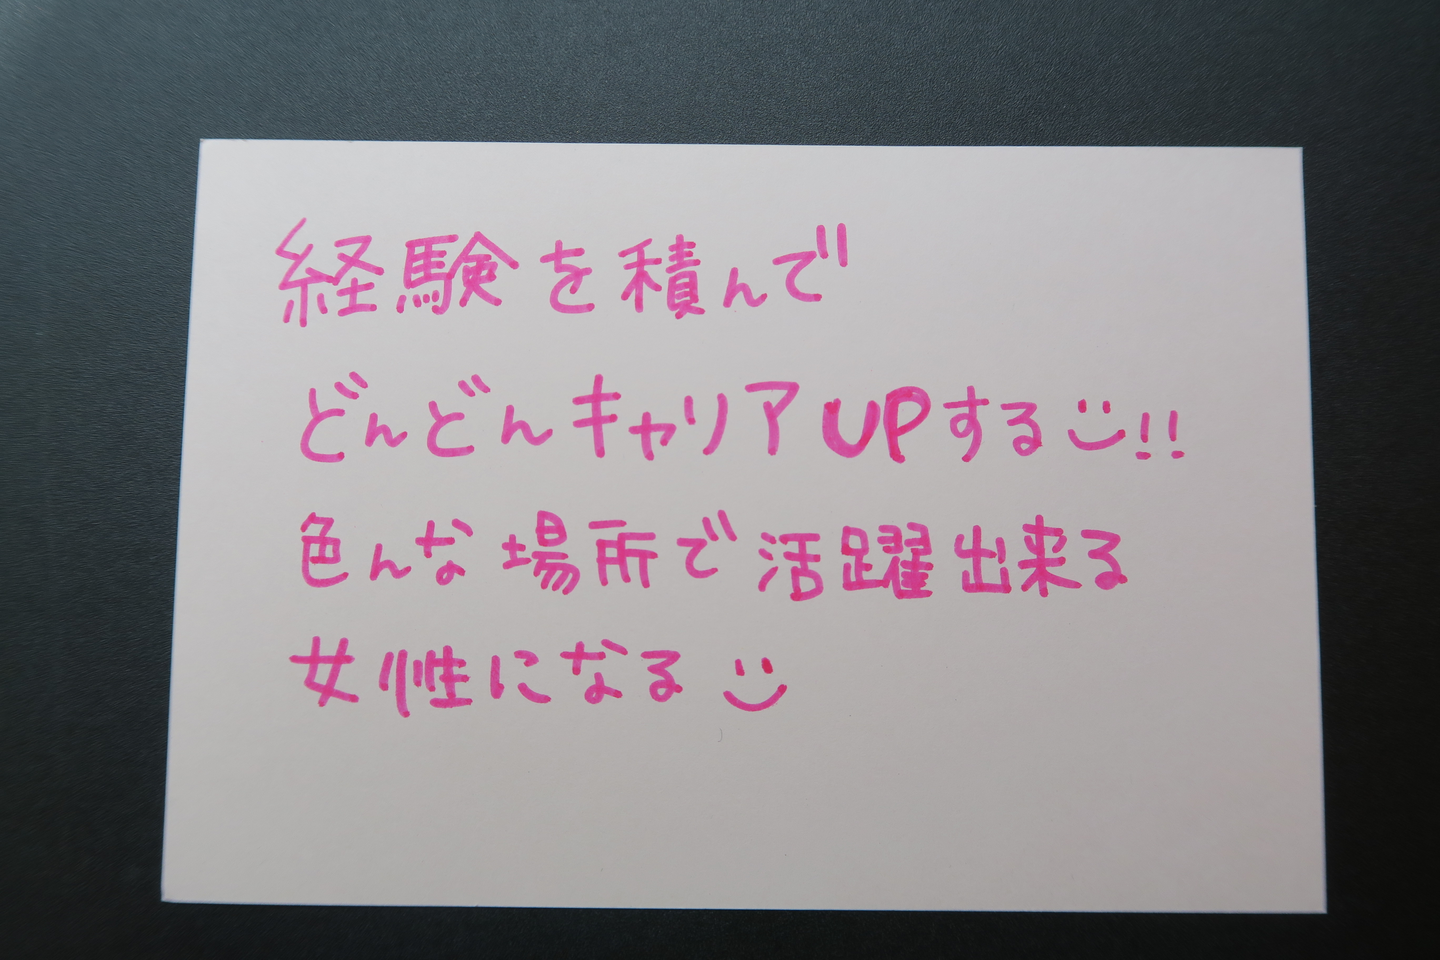 経験を積んで
どんどんキャリアUPする!!
色んな場所で活躍出来る
女性になる